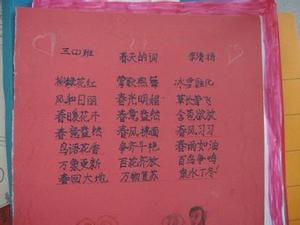 三(2)班 春天的词 李清扬
柳绿花红 莺歌燕舞 冰雪融化
风和日丽 春光明媚 草长莺飞
春暖花开 春意盎然 含苞欲放
春意盎然 春风拂面 春风习习
鸟语花香 争奇斗艳 春雨如油
万象更新 百花齐放 百鸟争鸣
春回大地 万物复苏 泉水丁冬